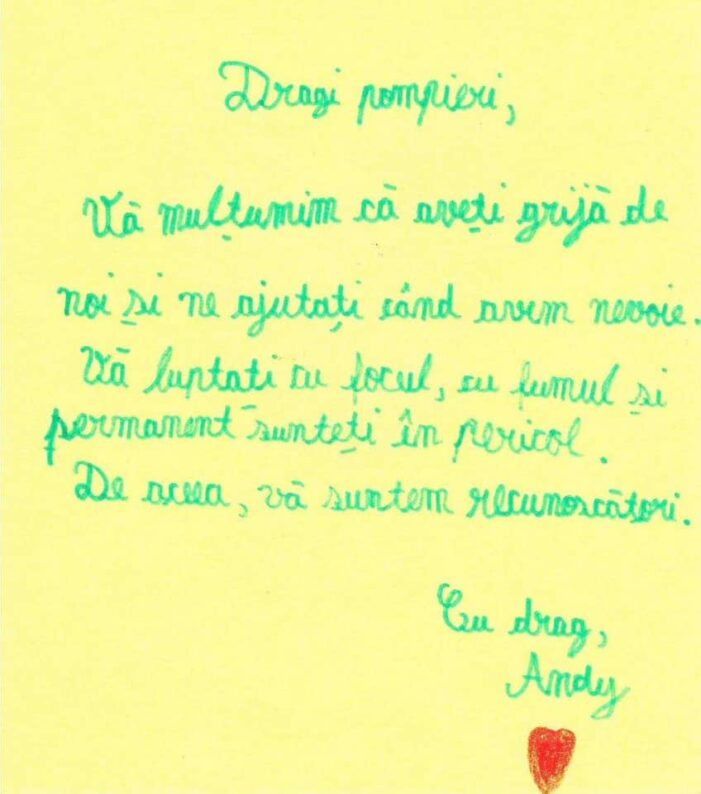 Dragi pompieri,
Vă mulțumim că aveți grijă de
noi și ne ajutați când avem nevoie.
Vă luptati cu focul, cu fumul și
permanent sunteți în pericol.
De aceea, vă suntem recunoscători.
Cu drag,
Andy